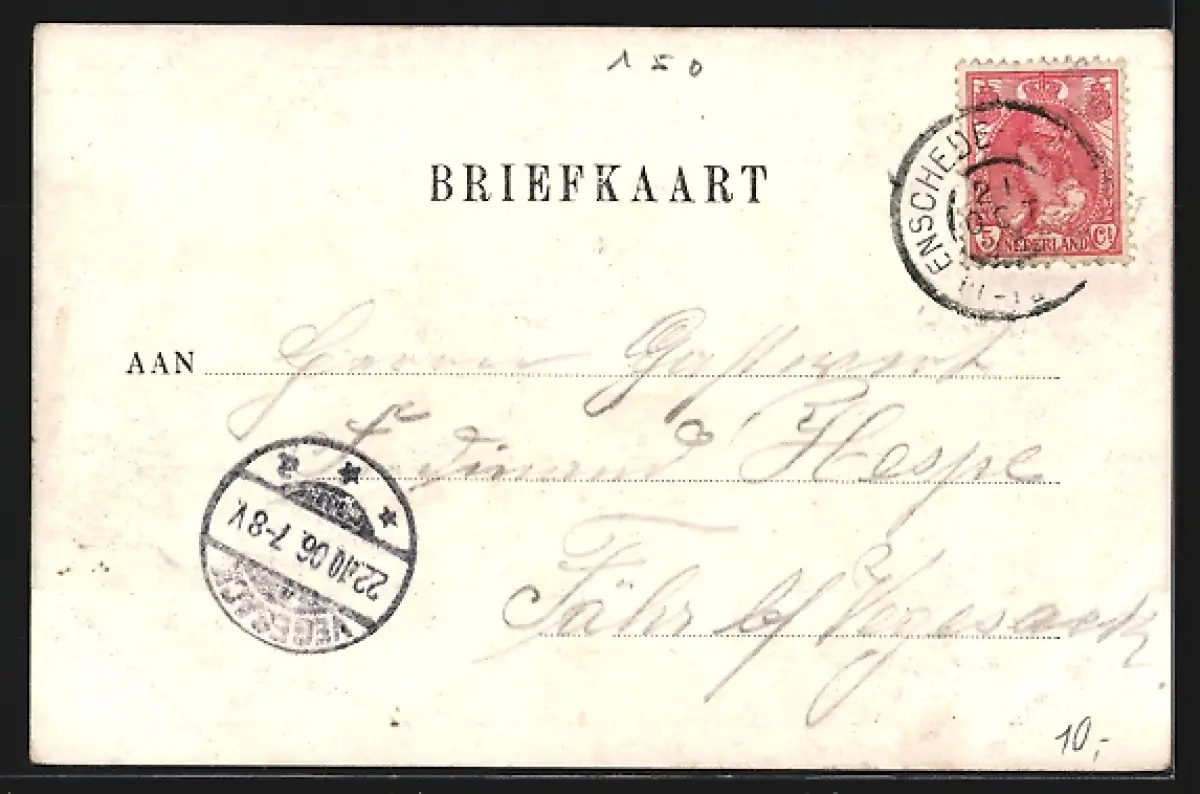 150
BRIEFKAART
ENSCHEDE
21
OCT
5 NEDERLAND Ct
11-12
AAN Herrn Gastwirt
Ferdinand Hespe
Fähr b/ Vegesack.
VEGESACK
22.10.06. 7-8V.
10,-